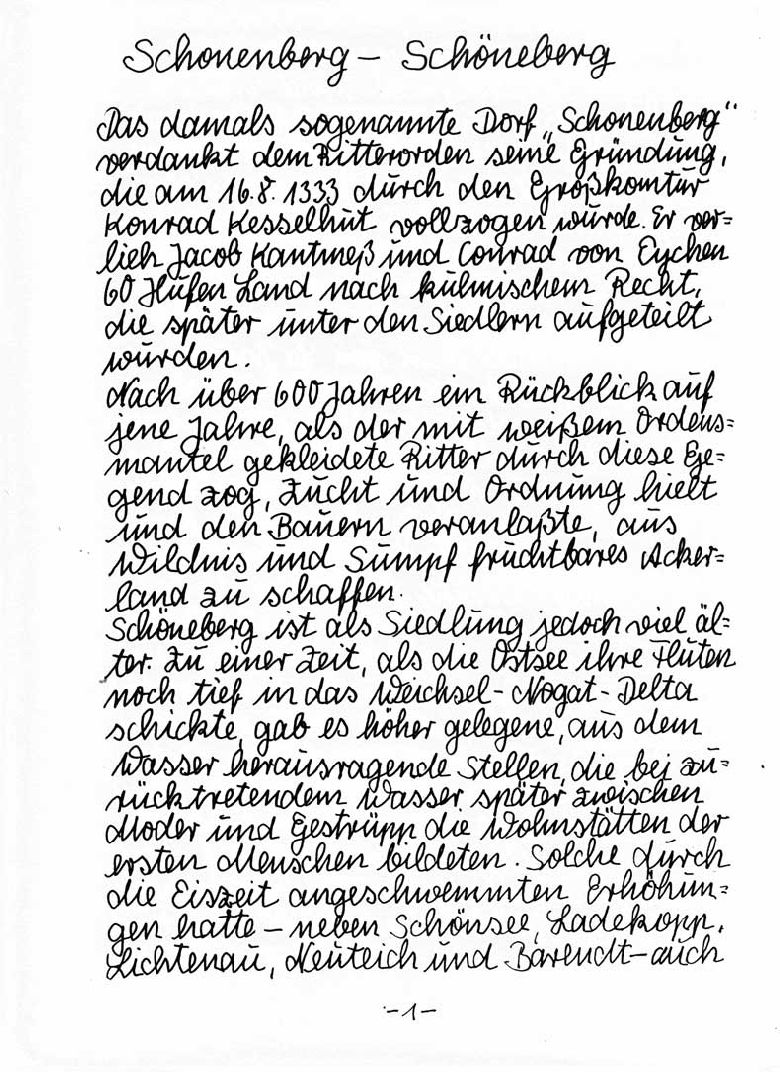 Schonenberg – Schöneberg
Das damals sogenannte Dorf „Schonenberg"
verdankt dem Ritterorden seine Gründung,
die am 16.8.1333 durch den Großkomtur
Konrad Kesselhut vollzogen wurde. Er ver=
lieh Jacob Kantmeß und Conrad von Eychen
60 Hufen Land nach kulmischem Recht,
die später unter den Siedlern aufgeteilt
wurden.
Nach über 600 Jahren ein Rückblick auf
jene Jahre, als der mit weißem Ordens=
mantel gekleidete Ritter durch diese Ge=
gend zog, Zucht und Ordnung hielt
und den Bauern veranlaßte, aus
Wildnis und Sumpf fruchtbares Acker=
land zu schaffen.
Schöneberg ist als Siedlung jedoch viel äl=
ter. Zu einer Zeit, als die Ostsee ihre Fluten
noch tief in das Weichsel-Nogat-Delta
schickte, gab es höher gelegene, aus dem
Wasser herausragende Stellen, die bei zu=
rücktretendem Wasser später zwischen
Moder und Gestrüpp die Wohnstätten der
ersten Menschen bildeten. Solche durch
die Eiszeit angeschwemmten Erhöhun=
gen hatte – neben Schönsee, Ladekopp,
Lichtenau, Neuteich und Barendt – auch
-1-